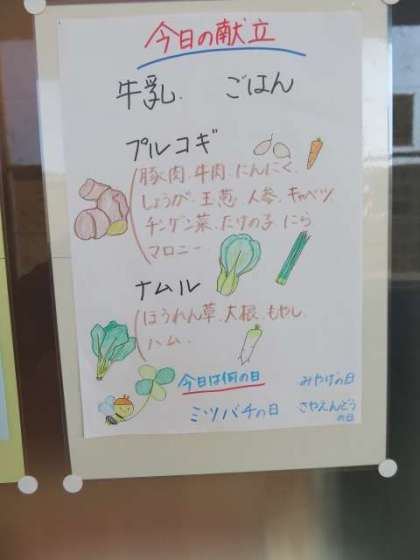 今日の献立
牛乳. ごはん
プルコギ
豚肉.牛肉.にんにく.
しょうが.玉葱.人参.キャベツ
チンゲン菜.たけの子.にら
マロニー
ナムル
ほうれん草.大根.もやし.
ハム.
今日は何の日
みやげの日
ミツバチの日
さやえんどう
の日